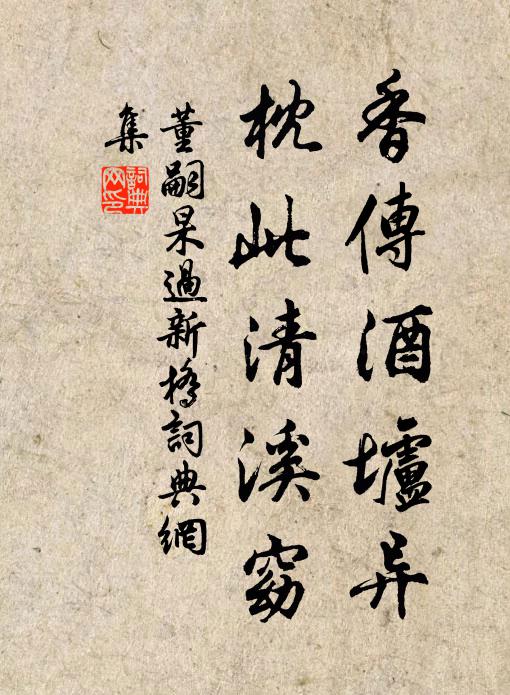 香傳酒壚异
枕此清溪窈
董嗣杲過新橋詞典網
集
詞典
网印